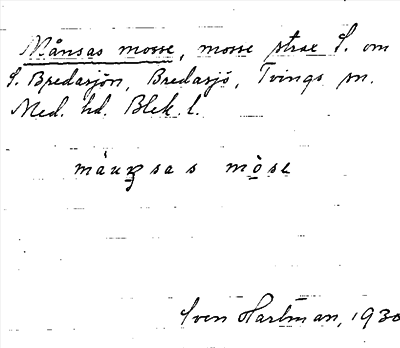 Månsas mosse, mosse strax S. om
S. Bredasjön, Bredasjö, Tvings sn.
Med. hd. Blek. l.
Sven Hartman, 1930